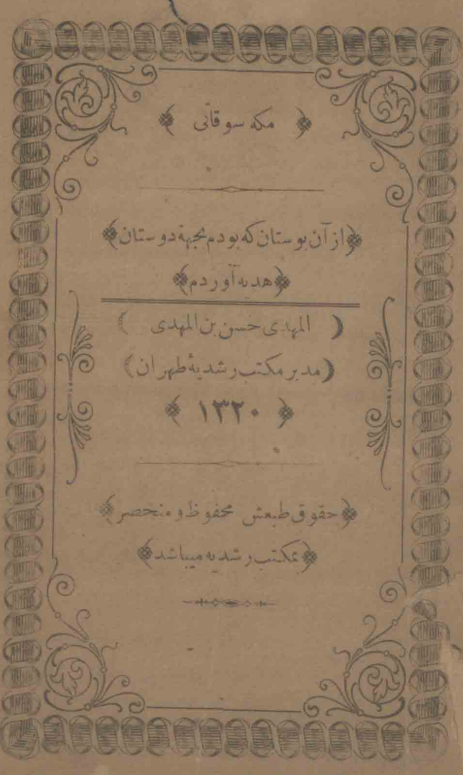 مکه سوقاتی
از آن بوستان که بودم بجهة دوستان
هدیه آوردم
المهدی حسن بن المهدی
(مدیر مکتب رشدیهٔ طهران)
۱۳۲۰
حقوق طبعش محفوظ و منحصر
بمکتب رشدیه میباشد